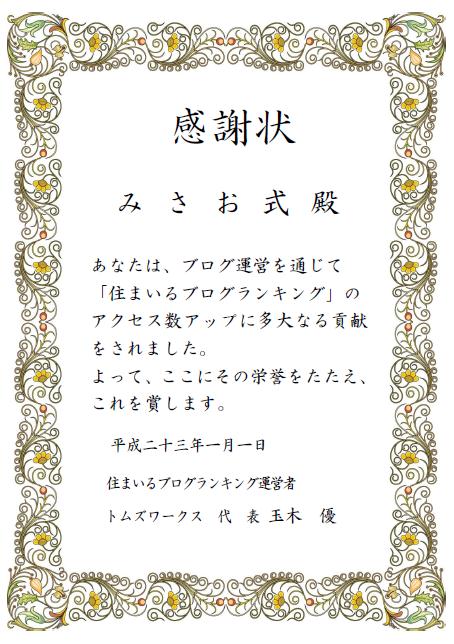 感謝状
みさお式 殿
あなたは、ブログ運営を通じて
「住まいるブログランキング」の
アクセス数アップに多大なる貢献
をされました。
よって、ここにその栄誉をたたえ、
これを賞します。
平成二十三年一月一日
住まいるブログランキング運営者
トムズワークス 代 表 玉木 優